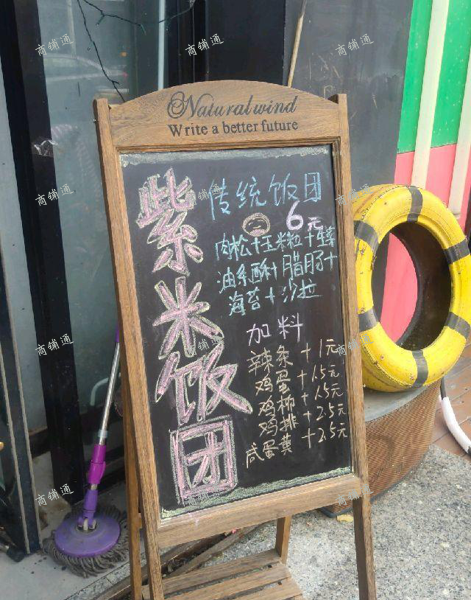 Naturalwind
Write a better future
紫米饭团
传统饭团
6元
肉松+玉米粒+榨
油条酥+腊肠+
海苔+沙拉
加料
辣条 +1元
鸡蛋 +1.5元
鸡柳 +1.5元
鸡排 +2.5元
咸蛋黄 +2.5元
商铺通
商铺通
商铺通
商铺通
商铺通
商铺通
商铺通
商铺通
商铺通
商铺通
商铺通
商铺通